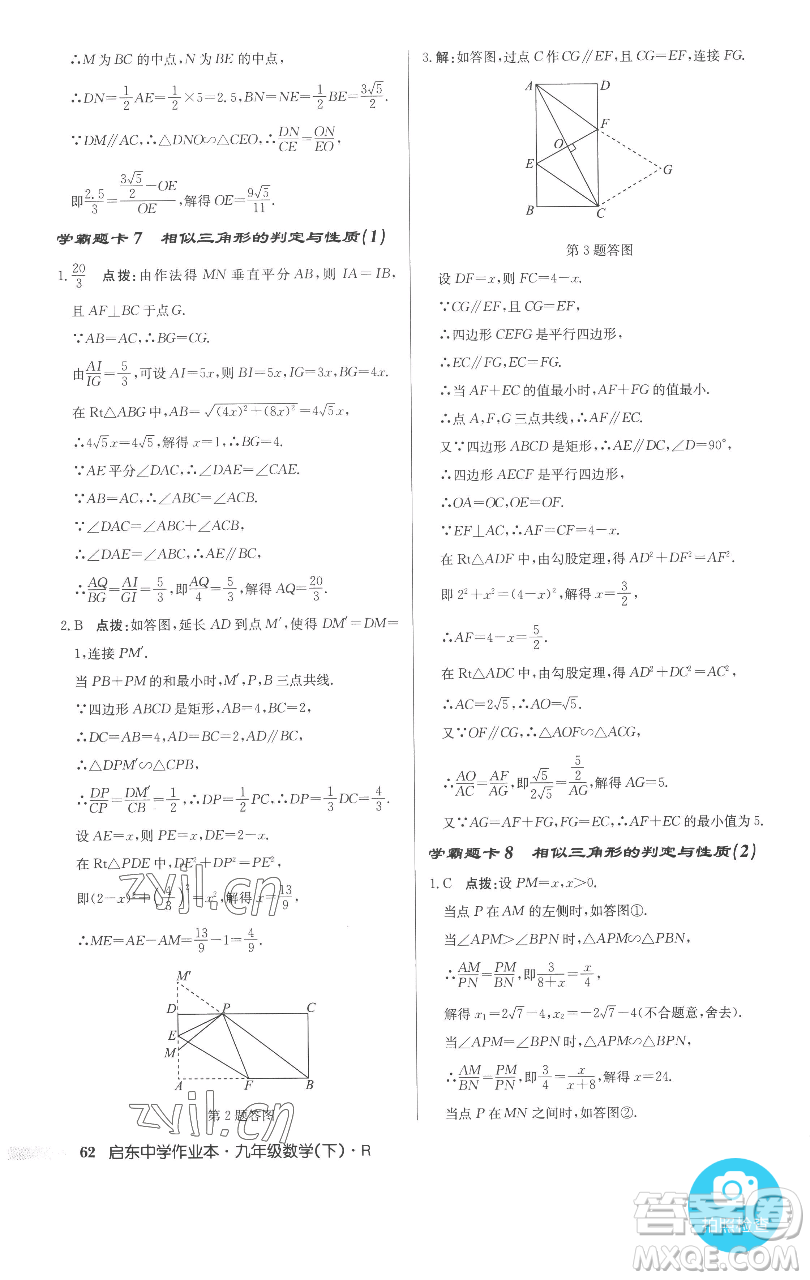 ∴M 为 BC 的中点,N 为 BE 的中点,
∴DN=1/2 AE=1/2×5=2.5,BN=NE=1/2 BE=3√5/2.
∵DM∥AC,∴△DNO∽△CEO,∴DN/CE=ON/EO,
即2.5/3=(3√5/2-OE)/OE,解得 OE=9√5/11.
学霸题卡 7 相似三角形的判定与性质(1)
1.20/3 点拨:由作法得 MN 垂直平分 AB,则 IA=IB,
且 AF⊥BC 于点 G.
∵AB=AC,∴BG=CG.
由AI/IG=5/3,可设 AI=5x,则 BI=5x,IG=3x,BG=4x.
在 Rt△ABG 中,AB=√((4x)²+(8x)²)=4√5x,
∴4√5x=4√5,解得 x=1,∴BG=4.
∵AE 平分∠DAC,∴∠DAE=∠CAE.
∵AB=AC,∴∠ABC=∠ACB.
∵∠DAC=∠ABC+∠ACB,
∴∠DAE=∠ABC,∴AE∥BC,
∴AQ/BG=AI/GI=5/3,即AQ/4=5/3,解得 AQ=20/3.
2.B 点拨:如答图,延长 AD 到点 M′,使得 DM′=DM=
1,连接 PM′.
当 PB+PM 的和最小时,M′,P,B 三点共线.
∵四边形 ABCD 是矩形,AB=4,BC=2,
∴DC=AB=4,AD=BC=2,AD∥BC,
∴△DPM′∽△CPB,
∴DP/CP=DM′/CB=1/2,∴DP=1/2 PC,∴DP=1/3 DC=4/3.
设 AE=x,则 PE=x,DE=2-x,
在 Rt△PDE 中,DE²+DP²=PE²,
即(2-x)²+(4/3)²=x²,解得 x=13/9,
∴ME=AE-AM=13/9-1=4/9.
M′
D P C
E
M
A F B
第 2 题答图
62 启东中学作业本·九年级数学(下)·R
3.解:如答图,过点 C 作 CG∥EF,且 CG=EF,连接 FG.
A D
F
O
E G
B C
第 3 题答图
设 DF=x,则 FC=4-x.
∵CG∥EF,且 CG=EF,
∴四边形 CEFG 是平行四边形,
∴EC∥FG,EC=FG.
∴当 AF+EC 的值最小时,
∴点 A,F,G 三点共线,∴AF∥EC.
又∵四边形 ABCD 是矩形,∴AE∥DC,∠D=90°,
∴四边形 AECF 是平行四边形,
∴OA=OC,OE=OF.
∵EF⊥AC,∴AF=CF=4-x.
在 Rt△ADF 中,由勾股定理,得 AD²+DF²=AF²,
即 2²+x²=(4-x)²,解得 x=3/2,
∴AF=4-x=5/2.
在 Rt△ADC 中,由勾股定理,得 AD²+DC²=AC²,
∴AC=2√5,∴AO=√5.
又∵OF∥CG,∴△AOF∽△ACG,
∴AO/AC=AF/AG,即√5/2√5=(5/2)/AG,解得 AG=5.
又∵AG=AF+FG=AF+EC,∴AF+EC 的最小值为 5.
学霸题卡 8 相似三角形的判定与性质(2)
1.C 点拨:设 PM=x,x>0.
当点 P 在 AM 的左侧时,如答图①.
当∠APM>∠BPN 时,∴△APM∽△PBN,
∴AM/PN=PM/BN,即3/(8+x)=x/4,
解得 x₁=2√7-4,x₂=-2√7-4(不合题意,舍去).
当∠APM=∠BPN 时,∴△APM∽△BPN,
∴AM/BN=PM/PN,即3/4=x/(x+8),解得 x=24.
当点 P 在 MN 之间时,如答图②.
zyjl.cn
zyjl.cn
拍照检查
答案圈
MXQE.COM